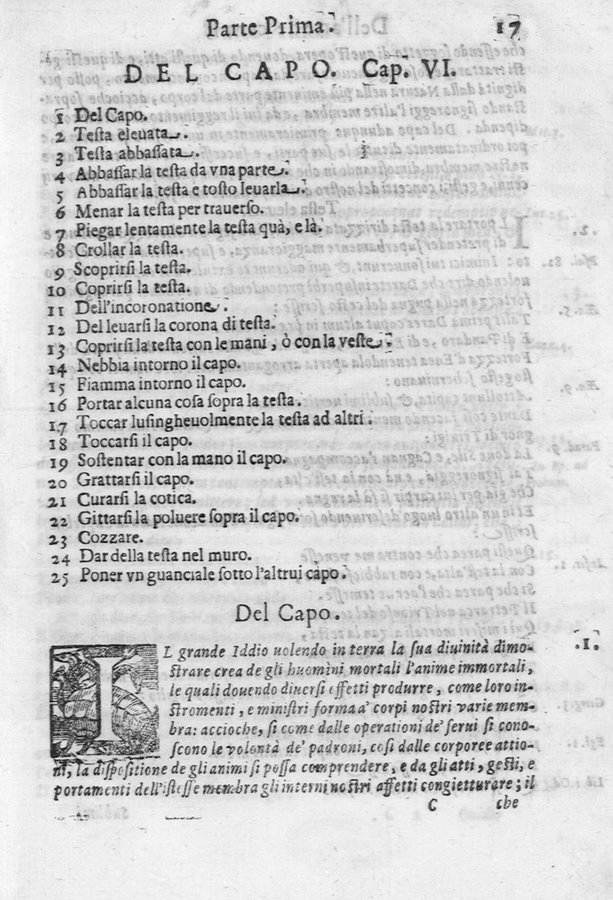 Parte Prima. 17
DEL CAPO. Cap. VI.
1 Del Capo.
2 Testa eleuata.
3 Testa abbassata.
4 Abbassar la testa da vna parte.
5 Abbassar la testa e tosto leuarla.
6 Menar la testa per trauerso.
7 Piegar lentamente la testa quà, e là.
8 Crollar la testa.
9 Scoprirsi la testa.
10 Coprirsi la testa.
11 Dell'incoronatione.
12 Del leuarsi la corona di testa.
13 Coprirsi la testa con le mani, ò con la veste.
14 Nebbia intorno il capo.
15 Fiamma intorno il capo.
16 Portar alcuna cosa sopra la testa.
17 Toccar lusingheuolmente la testa ad altri.
18 Toccarsi il capo.
19 Sostentar con la mano il capo.
20 Grattarsi il capo.
21 Curarsi la cotica.
22 Gittarsi la poluere sopra il capo.
23 Cozzare.
24 Dar della testa nel muro.
25 Poner vn guanciale sotto l'altrui càpo.
Del Capo.
IL grande Iddio uolendo in terra la sua diuinità dimo- .1.
strare crea de gli huomini mortali l'anime immortali,
le quali douendo diuersi effetti produrre, come loro in-
stromenti, e ministri forma a' corpi nostri varie mem-
bra: accioche, si come dalle operationi de' serui si cono-
scono le volontà de' padroni, così dalle corporee attio-
ni, la dispositione de gli animi si possa comprendere, e da gli atti, gesti, e
portamenti dell'istesse membra gli interni nostri affetti congietturare; il
C che